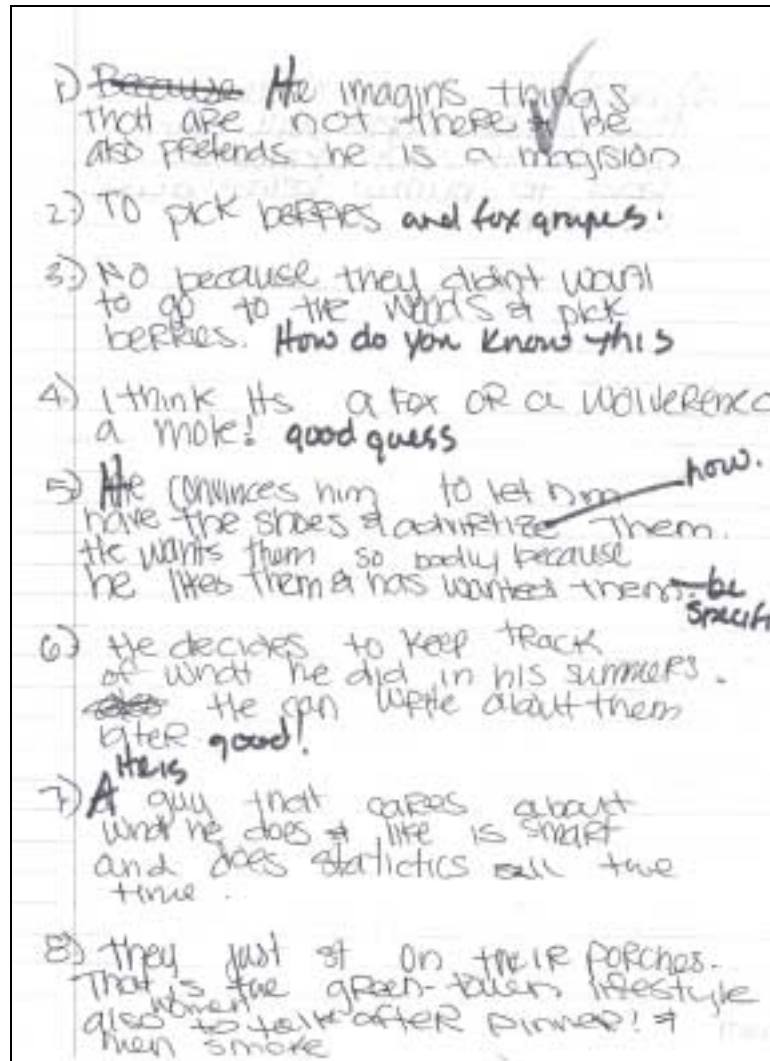 1) Because He imagins things
that are not there & he
also pretends he is a magision
2) To pick berries and fox grapes.
3.) No because they didnt want
to go to the woods & pick
berries. How do you know this
4) I think its a fox or a wolverene or
a mole! good guess
5) He convinces him to let him how.
have the shoes & advertize them.
He wants them so badly because
he likes them & has wanted them. be
specific
6) He decides to keep track
of what he did in his summers.
He can write about them
later good!
He is
7) A guy that cares about
what he does & life is smart
and does statictics all the
time.
8) they just sit on their porches.
That is the green-town lifestyle
women
also to talk after dinner! &
men smoke